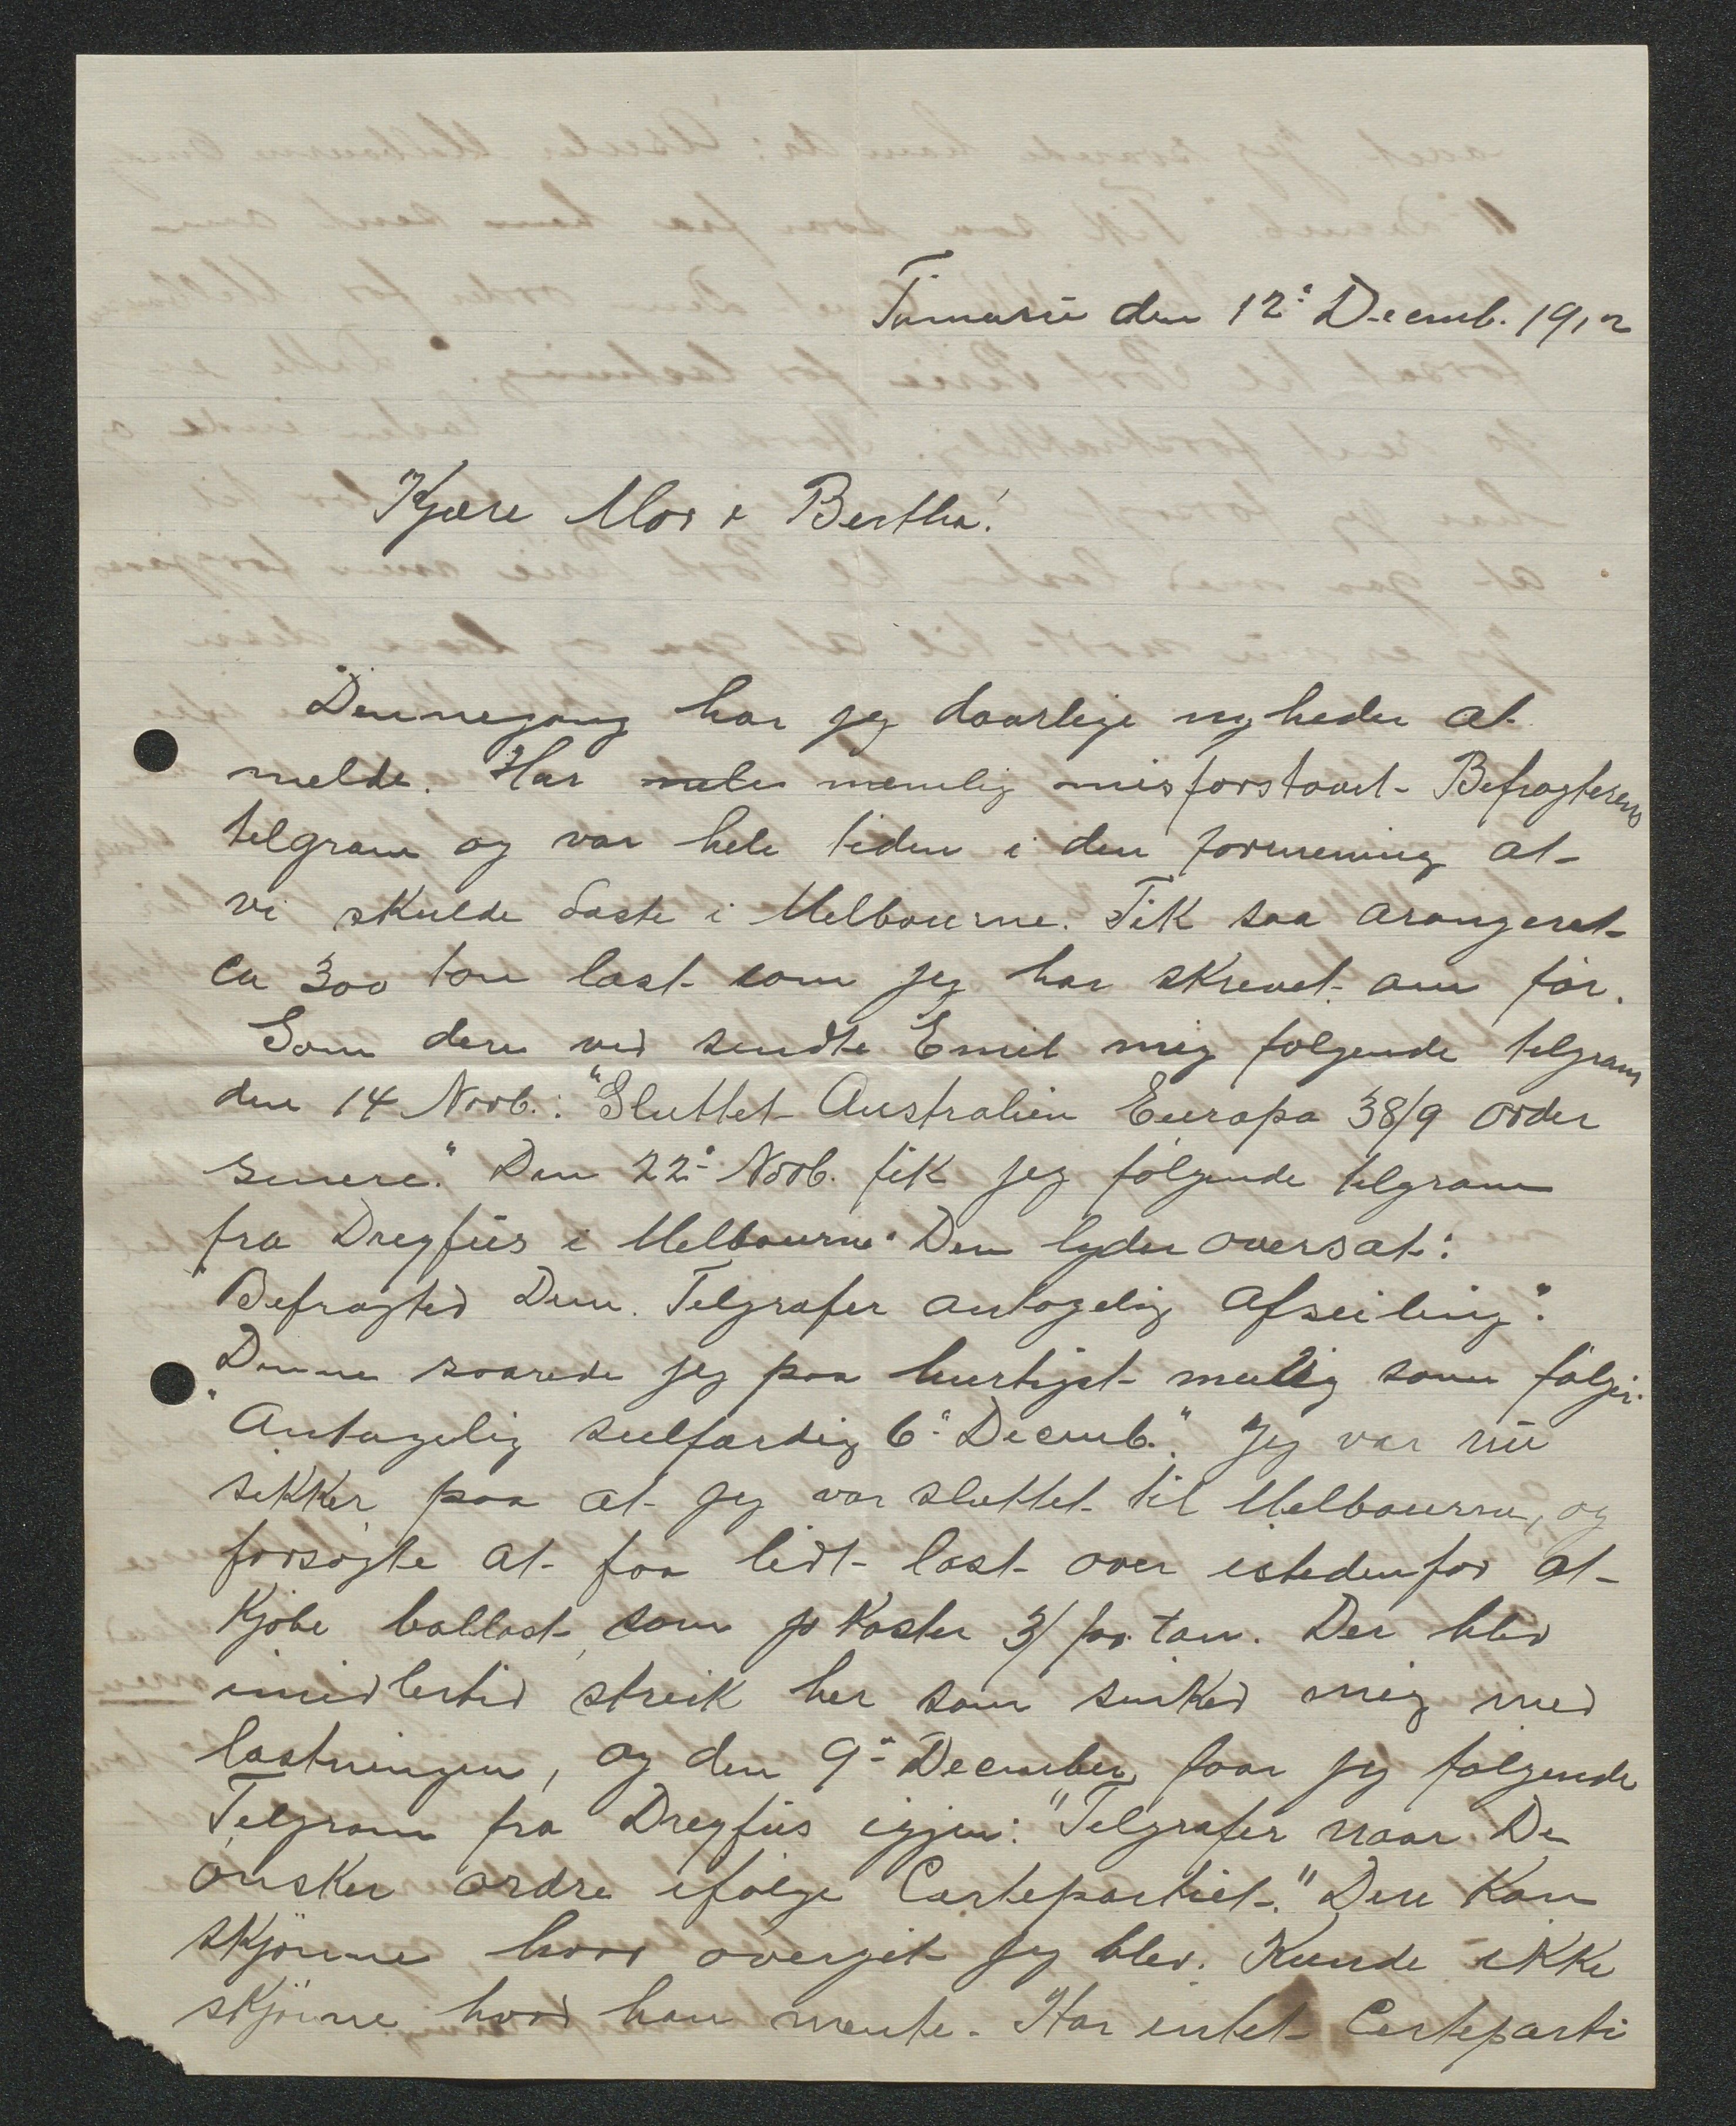 Timaru den 12te Decemb. 1912
Kjære Mor & Bertha!
Dennegang har jeg daarlige nyheder at
melde. Har nemlig misforstaaet Befragterens
telgram og var hele tiden i den formening at
vi skulde laste i Melbourne. Fik saa arangeret
ca 300 ton last som jeg har skrevet om før.
Som dere ved sendte Emil mig følgende telgram
den 14 Novb.: "Sluttet Australien Europa 38/9 order
senere." Den 22 Novb. fik jeg følgende telgram
fra Dreyfus i Melbourne. Den lyder oversat:
"Befragted Dem. Telgrafer antagelig afseiling".
Denne svarede jeg paa hurtigst mulig som følger:
"Antagelig seilfærdig 6 Decemb." Jeg var nu
sikker paa at jeg var sluttet til Melbourne, og
forsøgte at faa lidt last over istedenfor at
kjøbe ballast, som jo koster 3/ for ton. Der blev
imidlertid streik her som sinked mig med
lastningen, og den 9 December faar jeg følgende
Telgram fra Dreyfus igjen: "Telgrafer naar De
ønsker ordre ifølge Certepartiet." Dere kan
skjønne hvor overgit jeg blev. Kunde ikke
skjønne hvad han mente. Har intet Certeparti